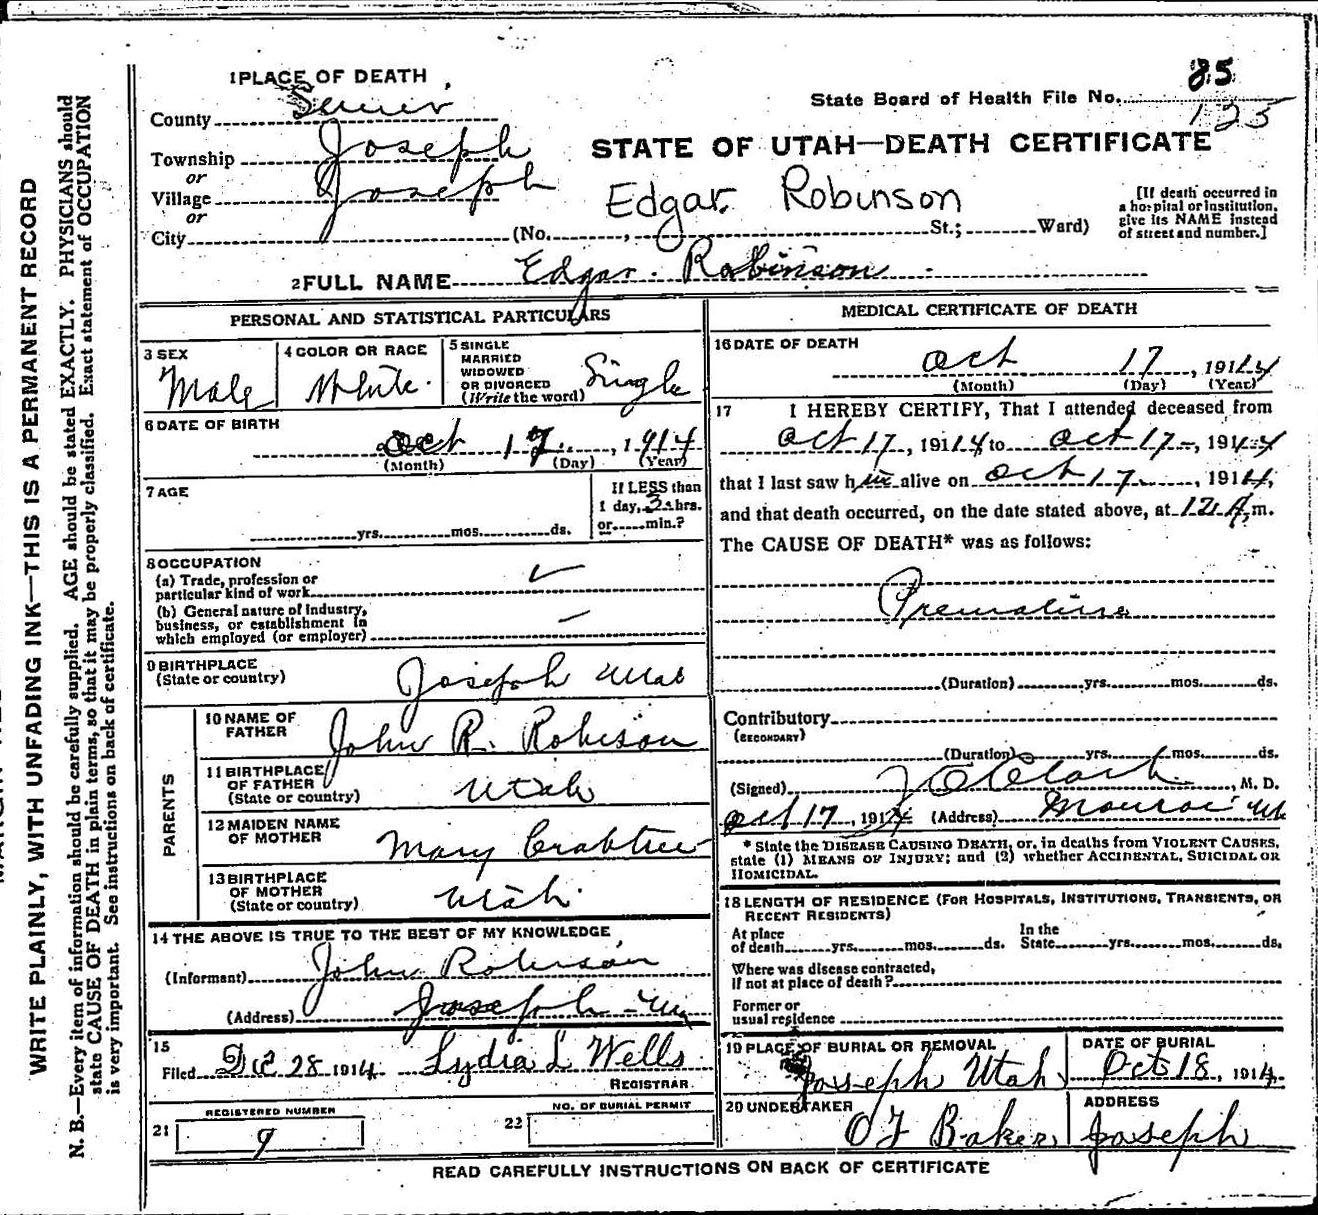 WRITE PLAINLY, WITH UNFADING INK—THIS IS A PERMANENT RECORD
N. B.—Every item of information should be carefully supplied. AGE should be stated EXACTLY. PHYSICIANS should
state CAUSE OF DEATH in plain terms, so that it may be properly classified. Exact statement of OCCUPATION
is very important. See instructions on back of certificate.
1 PLACE OF DEATH
County Sevier
Township Joseph
or
Village Joseph
or
City (No. , St.; Ward)
85
State Board of Health File No. 125
STATE OF UTAH—DEATH CERTIFICATE
Edgar Robinson
[If death occurred in
a hospital or institution,
give its NAME instead
of street and number.]
2 FULL NAME Edgar Robinson
PERSONAL AND STATISTICAL PARTICULARS
3 SEX
Male
4 COLOR OR RACE
White
5 SINGLE
MARRIED
WIDOWED
OR DIVORCED
(Write the word)
Single
6 DATE OF BIRTH
Oct 17, 1914
(Month) (Day) (Year)
7 AGE
yrs. mos. ds.
If LESS than
1 day, 3 hrs.
or min.?
8 OCCUPATION
(a) Trade, profession or
particular kind of work
(b) General nature of Industry,
business, or establishment in
which employed (or employer)
9 BIRTHPLACE
(State or country)
Joseph Utah
PARENTS
10 NAME OF
FATHER
John R. Robison
11 BIRTHPLACE
OF FATHER
(State or country)
Utah
12 MAIDEN NAME
OF MOTHER
Mary Crabtree
13 BIRTHPLACE
OF MOTHER
(State or country)
Utah
14 THE ABOVE IS TRUE TO THE BEST OF MY KNOWLEDGE
(Informant) John Robison
(Address) Joseph - Ut
15
Filed Dec 28 1914 Lydia L Wells
REGISTRAR
REGISTERED NUMBER
21 9
NO. OF BURIAL PERMIT
22
MEDICAL CERTIFICATE OF DEATH
16 DATE OF DEATH
Oct 17, 1914
(Month) (Day) (Year)
17 I HEREBY CERTIFY, That I attended deceased from
Oct 17, 1914 to Oct 17, 1914
that I last saw him alive on Oct 17, 1914,
and that death occurred, on the date stated above, at 12 A.m.
The CAUSE OF DEATH* was as follows:
Premature
(Duration) yrs. mos. ds.
Contributory
(SECONDARY)
(Duration) yrs. mos. ds.
(Signed) Clark, M. D.
Oct 17, 1914 (Address) Monroe Ut
* State the DISEASE CAUSING DEATH, or, in deaths from VIOLENT CAUSES,
state (1) MEANS OF INJURY; and (2) whether ACCIDENTAL, SUICIDAL OR
HOMICIDAL.
18 LENGTH OF RESIDENCE (FOR HOSPITALS, INSTITUTIONS, TRANSIENTS, OR
RECENT RESIDENTS)
At place
of death yrs. mos. ds.
In the
State yrs. mos. ds.
Where was disease contracted,
If not at place of death?
Former or
usual residence
19 PLACE OF BURIAL OR REMOVAL
Joseph Utah
DATE OF BURIAL
Oct 18, 1914
20 UNDERTAKER
O F Baker
ADDRESS
Joseph
READ CAREFULLY INSTRUCTIONS ON BACK OF CERTIFICATE